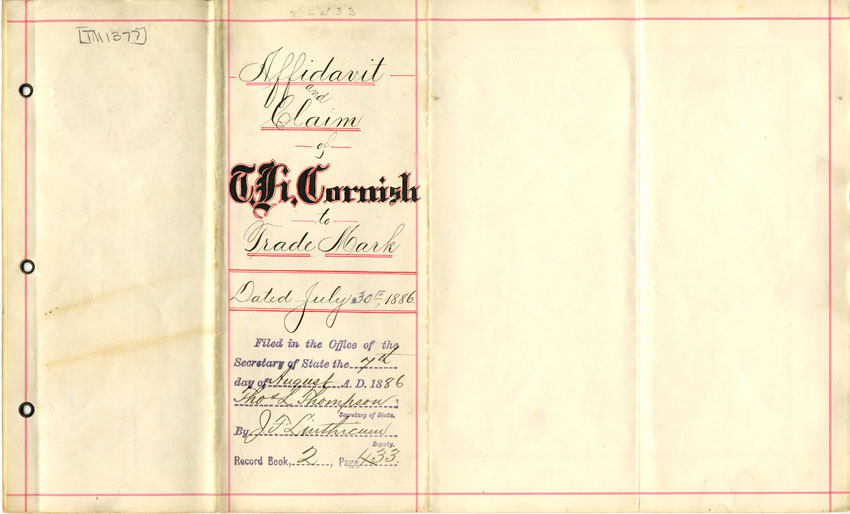 2-433
[TM1377]
Affidavit
and
Claim
of
T.H. Cornish
to
Trade Mark
Dated July 30th, 1886
Filed in the Office of the
Secretary of State the 7th
day of August A. D. 1886
Thos L Thompson
Secretary of State.
By J F Linthicum
Deputy.
Record Book, 2, Page 433.